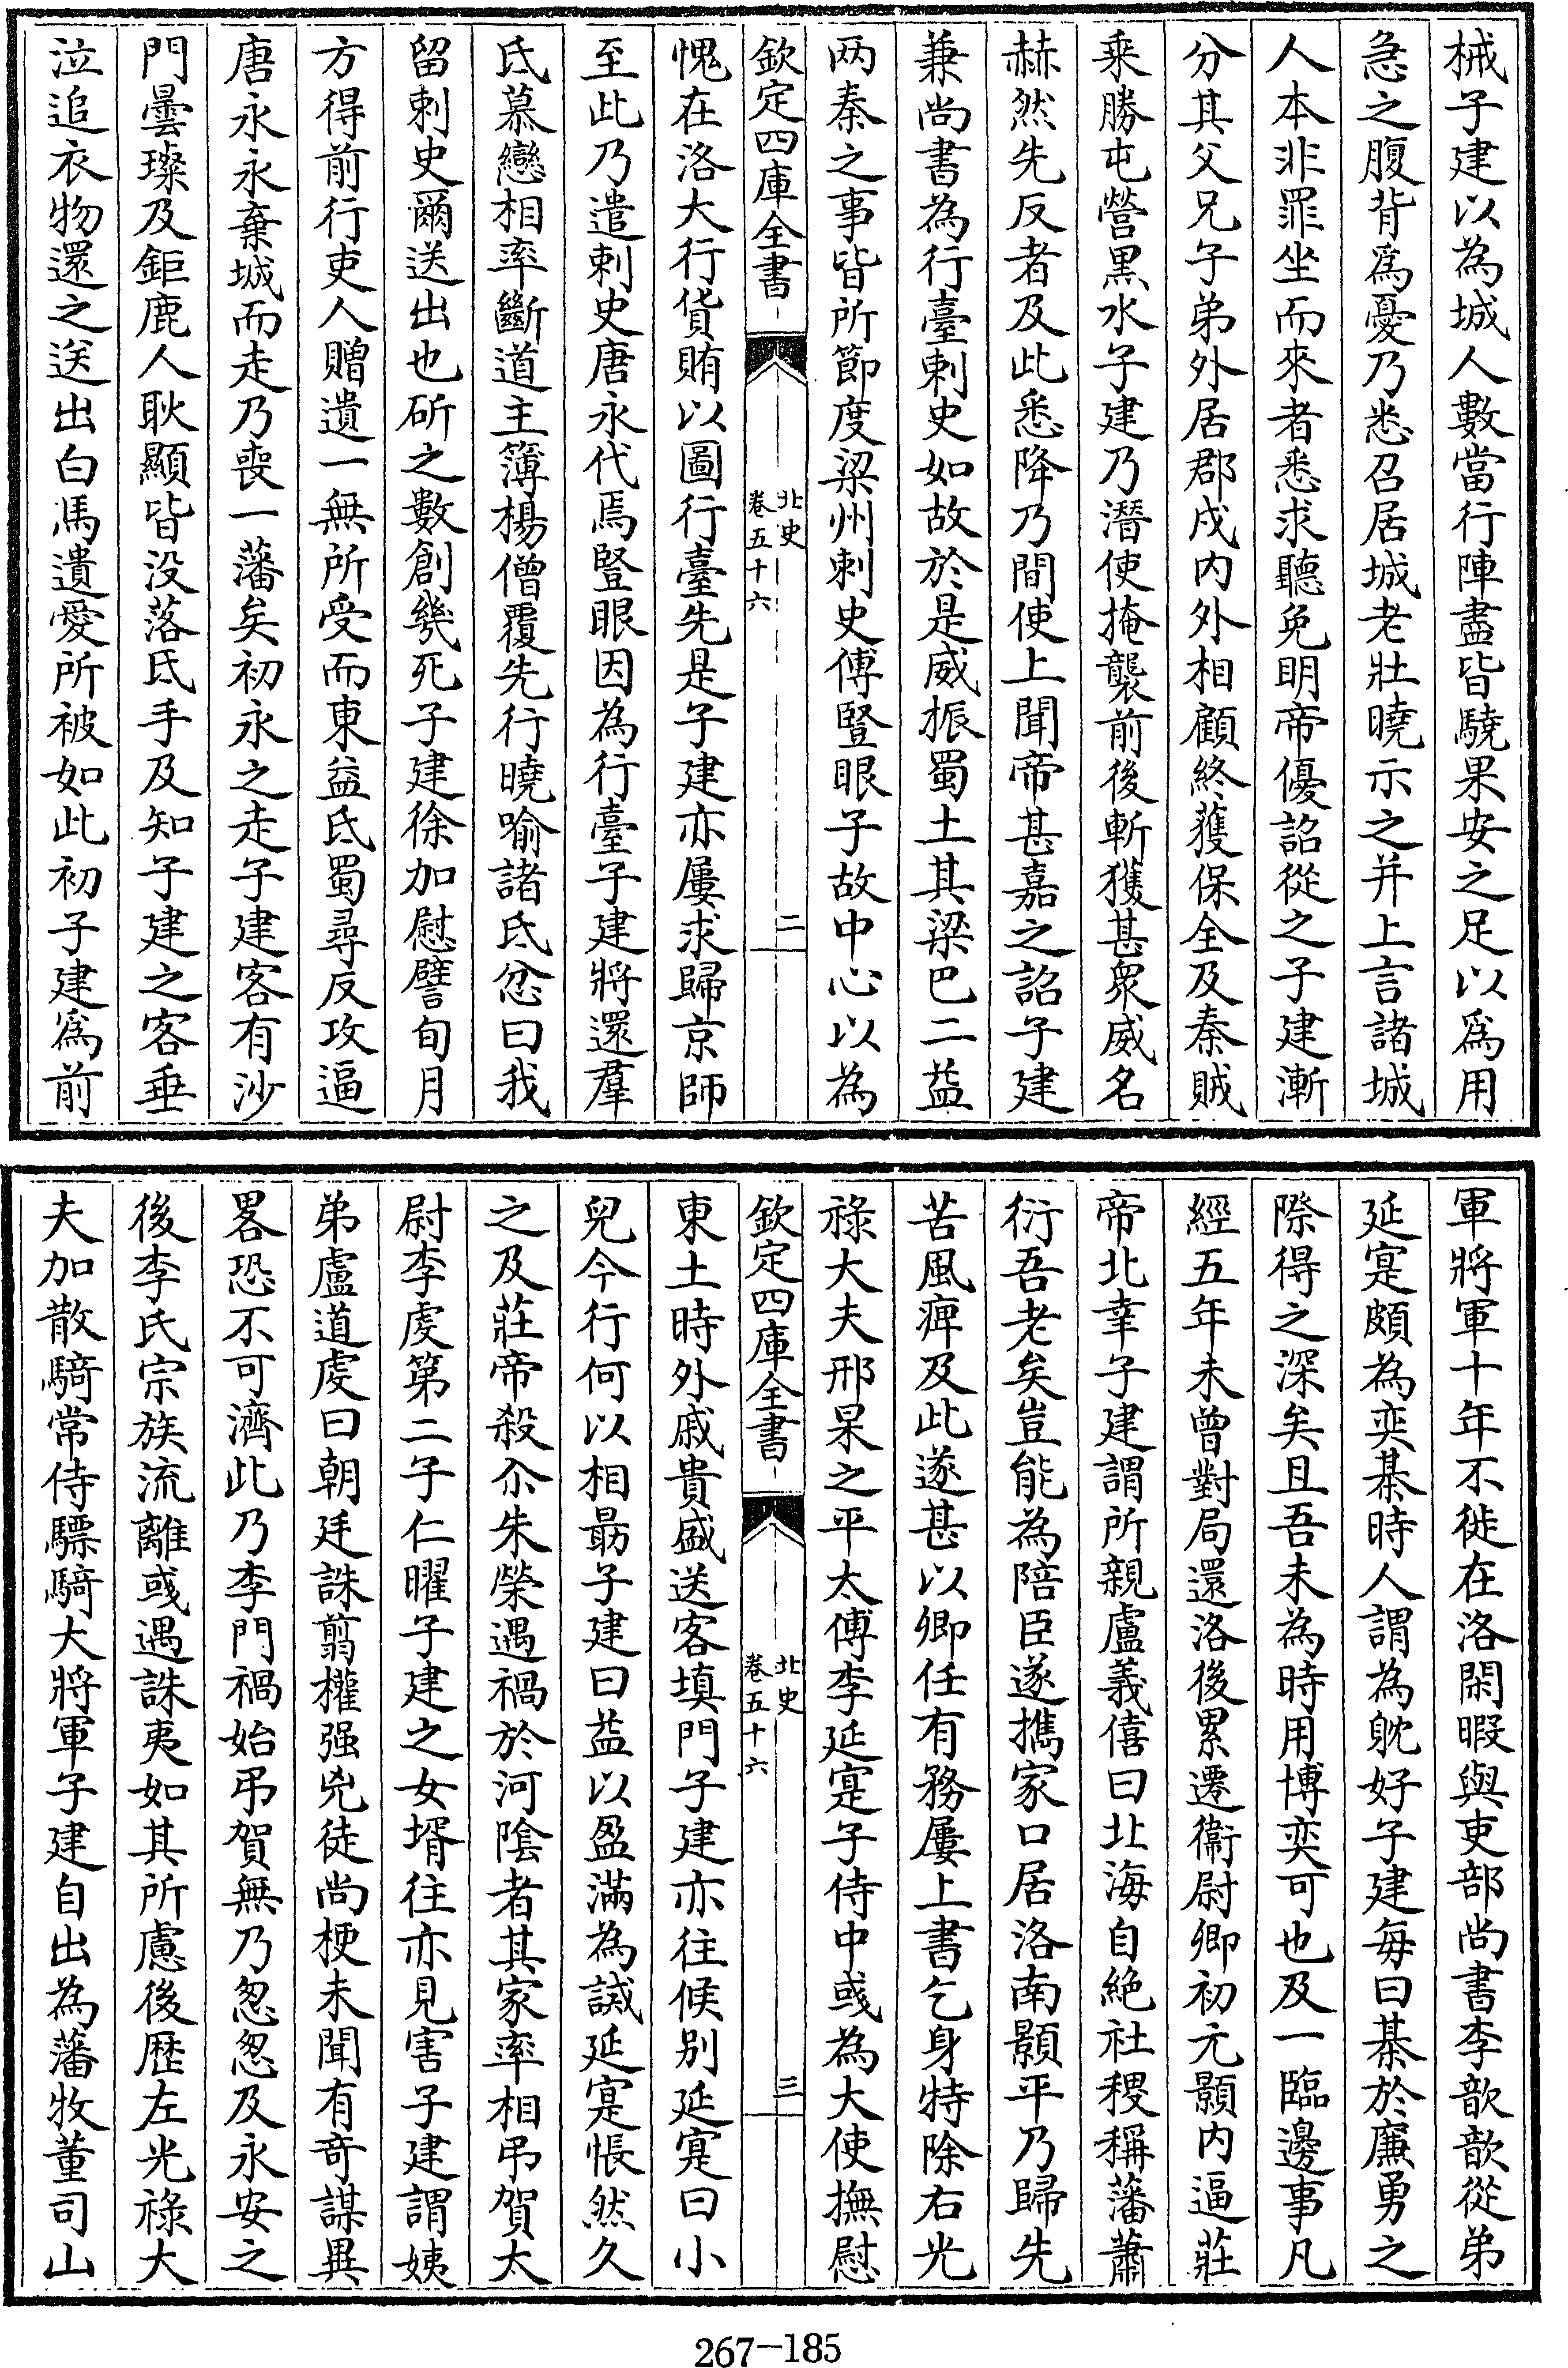 械子建以為城人數當行陣盡皆驍果安之足以爲用
急之腹背爲憂乃悉召居城老壯曉示之并上言諸城
人本非罪坐而來者悉求聽免明帝優詔從之子建漸
分其父兄子弟外居郡戍内外相顧終獲保全及秦賊
乘勝屯營黑水子建乃潛使掩襲前後斬獲甚衆威名
赫然先反者及此悉降乃間使上聞帝甚嘉之詔子建
兼尚書為行臺刺史如故於是威振蜀土其梁巴二益
兩秦之事皆所節度梁州刺史傅豎眼子故中心以為
欽定四庫全書
北史
卷五十六
二
愧在洛大行貨賄以圖行臺先是子建亦屢求歸京師
至此乃遣刺史唐永代焉豎眼因為行臺子建將還羣
氐慕戀相率斷道主簿楊僧覆先行曉喻諸氐忿曰我
留刺史爾送出也斫之數創幾死子建徐加慰譬旬月
方得前行吏人贈遺一無所受而東益氐蜀尋反攻逼
唐永永棄城而走乃喪一藩矣初永之走子建客有沙
門曇璨及鉅鹿人耿顯皆没落氐手及知子建之客垂
泣追衣物還之送出白馬遺愛所被如此初子建爲前
軍將軍十年不徙在洛閑暇與吏部尚書李歆歆從弟
延寔頗為奕棊時人謂為躭好子建每曰棊於廉勇之
際得之深矣且吾未為時用博奕可也及一臨邊事凡
經五年未曾對局還洛後累遷衞尉卿初元顥内逼莊
帝北幸子建謂所親盧義僖曰北海自絶社稷稱藩蕭
衍吾老矣豈能為陪臣遂攜家口居洛南顥平乃歸先
苦風痺及此遂甚以卿任有務屢上書乞身特除右光
祿大夫邢杲之平太傅李延寔子侍中彧為大使撫慰
欽定四庫全書
北史
卷五十六
三
東土時外戚貴盛送客填門子建亦往候别延寔曰小
兒今行何以相勗子建曰益以盈滿為誡延寔悵然久
之及莊帝殺尒朱榮遇禍於河陰者其家率相弔賀太
尉李虔第二子仁曜子建之女壻往亦見害子建謂姨
弟盧道虔曰朝廷誅翦權强兇徒尚梗未聞有奇謀異
畧恐不可濟此乃李門禍始弔賀無乃怱怱及永安之
後李氏宗族流離或遇誅夷如其所慮後歴左光祿大
夫加散騎常侍驃騎大將軍子建自出為藩牧董司山
267-185